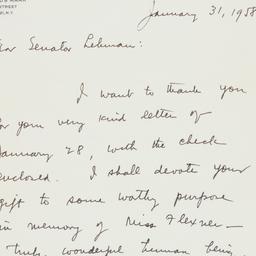 STREET
January 31, 1958
Senator Lehman:
I want to thank you
for your very kind letter of
January 28, with the check
enclosed. I shall devote your
gift to some worthy purpose
in memory of Miss Flexner —
truly wonderful human being